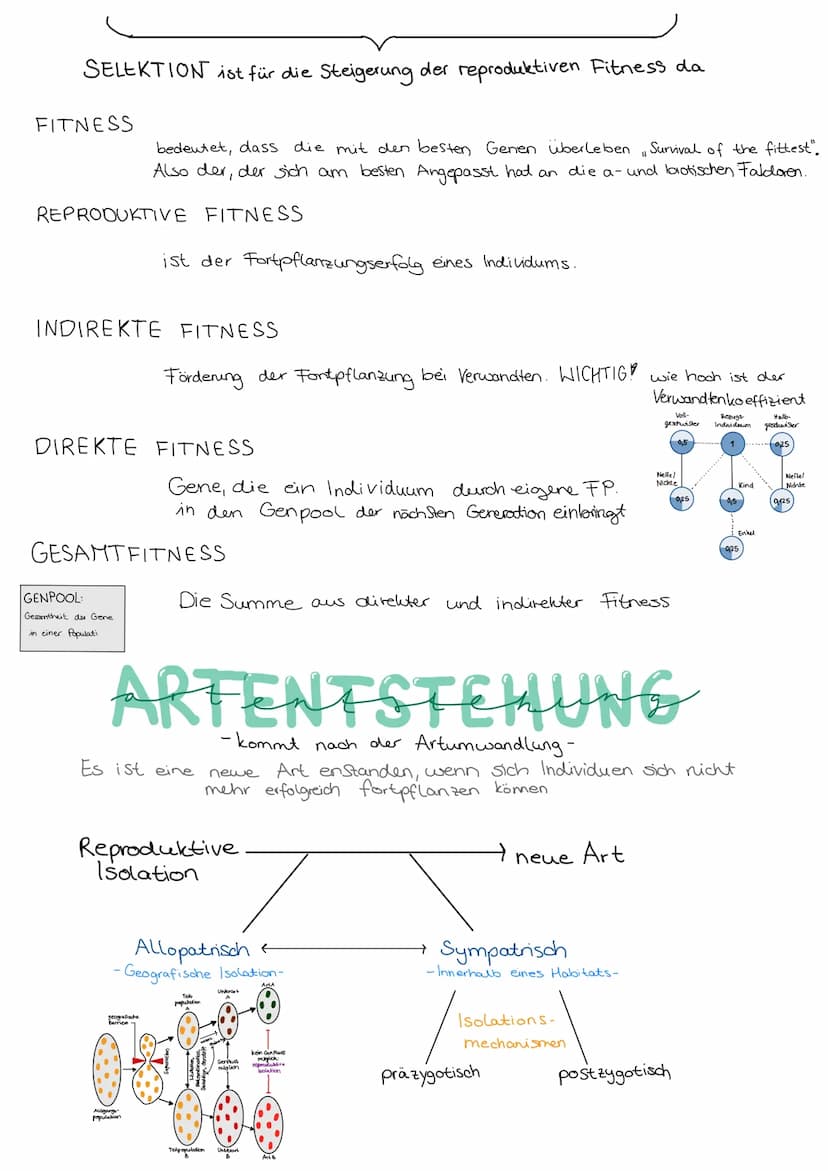 SELEKTION ist für die Steigerung der reproduktiven Fitness da
FITNESS
bedeutet, dass die mit den besten Genen überleben „Survival of the fittest".
Also der, der sich am besten Angepasst hat an die a- und biotischen Faktoren.
REPRODUKTIVE FITNESS
ist der Fortpflanzungserfolg eines Individums.
INDIREKTE FITNESS
Förderung der Fortpflanzung bei Verwandten. WICHTIG! wie hoch ist der
Verwandtenkoeffizient
Voll-
geschwister
Bezugs
Individuum
Halb-
geschwister
0,5
1
0,25
DIREKTE FITNESS
Gene, die ein Individuum durch eigene FP.
in den Genpool der nächsten Generation einbringt
Neffe/
Nichte
Kind
Neffe/
Nichte
0,25
0,5
0,125
Enkel
0,25
GESAMTFITNESS
Die Summe aus direkter und indirekter Fitness
GENPOOL:
Gesamtheit der Gene
in einer Populati
ARTENTSTEHUNG
artentstehung
-kommt nach der Artumwandlung-
Es ist eine neue Art enstanden, wenn sich Individuen sich nicht
mehr erfolgreich fortpflanzen können
Reproduktive
Isolation
neue Art
Allopatrisch
-Geografische Isolation-
Sympatrisch
-Innerhalb eines Habitats-
Isolations-
mechanismen
präzygotisch
postzygotisch
geografische
Barriere
Ausgangs-
population
Separation
Teil-
population
A
Unterart
A
Art A
Genfluss
möglich
kein Genfluss
möglich
reproduktive
Isolation
Teilpopulation
B
Unterart
B
Art B